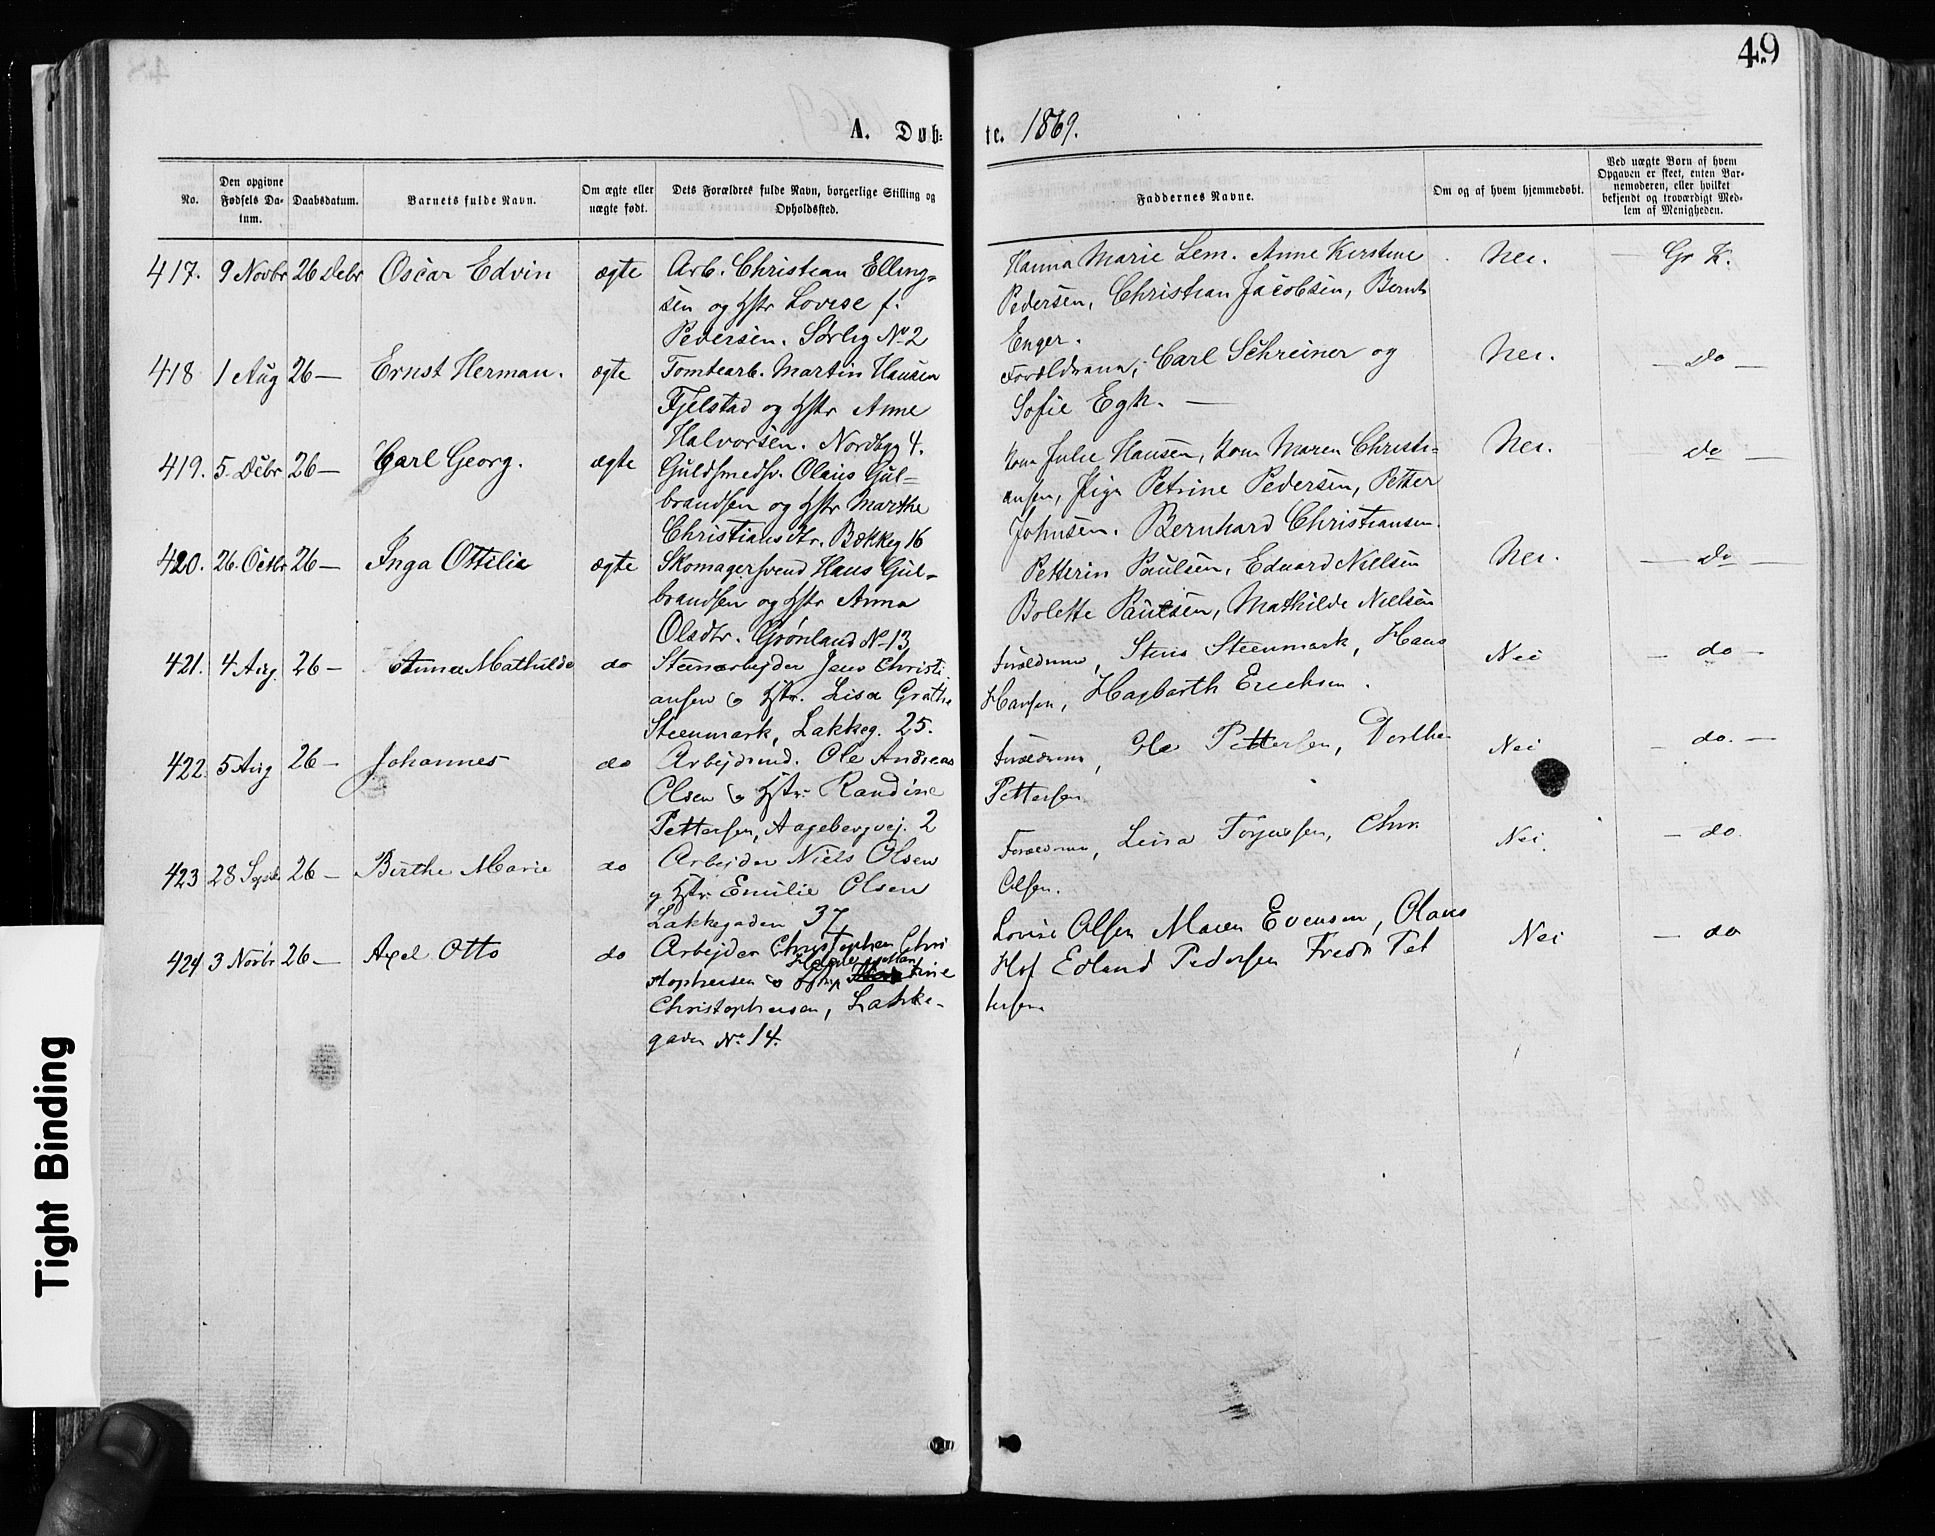 49
A. Døb-
te. 1869.
No.
Den opgivne Fødsels Da-tum.
Daabsdatum.
Barnets fulde Navn.
Om ægte eller uægte født.
Dets Forældres fulde Navn, borgerlige Stilling og Opholdssted.
Faddernes Navne.
Om og af hvem hjemmedøbt.
Ved uægte Børn af hvem Opgaven er skeet, enten Bar-nemoderen, eller hvilket bekjendt og troværdigt Med-lem af Menigheden.
417. 9 Novbr 26 Debr Oscar Edvin ægte Arb. Christian Elling-
sen og Hstr Lovise f.
Pedersen. Sørlig No 2
Hanna Marie Lem. Anne Kirstine
Pedersen, Christian Jacobsen, Bernt
Enger.
Nei. Gr K.
418 1 Aug 26 — Ernst Herman. ægte Tomtearb. Martin Hansen
Fjelstad og Hstr Anne
Halvorsen. Nordbyg 4.
Forældrene, Carl Schreiner og
Sofie Egh. —
Nei. — do —
419. 5. Debr 26 — Carl Georg. ægte Guldsmedsv. Olaus Gul-
brandsen og Hstr Marthe
Christiansdtr. Bækkeg 16
Kone Julie Hansen, Kone Maren Christi-
ansen, Pige Petrine Pedersen, Petter
Johnsen. Bernhard Christiansen.
Nei. do —
420. 26. Octbr 26 — Inga Ottilie ægte Skomagersvend Hans Gul-
brandsen og Hstr Anna
Olsdtr. Grønland No 13
Petterin Paulsen, Eduard Nielsen
Bolette Paulsen, Mathilde Nielsen
Nei. — do —
421. 4 Aug. 26 — Anna Mathilde do Steenarbejder Jens Christi-
ansen & Hstr. Lisa Grethe
Steenmark, Lakkeg. 25.
Forældrene, Stina Steenmark, Hans
Hansen, Hagbarth Ericksen.
Nei — do —
422. 5 Aug 26 — Johannes do Arbejdsmd. Ole Andreas
Olsen & Hstr. Randine
Pettersen, Aagebergvej. 2
Forældrene, Ole Pettersen, Dorthe
Pettersen
Nei — do. —
423 28 Septb 26 — Birthe Marie do Arbejder Niels Olsen
og Hstr. Emilie Olsen
Lakkegaden 37
Forældrene, Lina Torjussen, Chr.
Olsen.
Nei. — do.
424 3 Novbr 26 — Axel Otto do Arbejder Christopher Chri
stophersen &
Christophersen, Lakke-
gaden No. 14.
Lovise Olsen Maren Evensen, Olaus
Hof Edland Pedersen Fredr Pet
tersen
Nei — do
Tight Binding